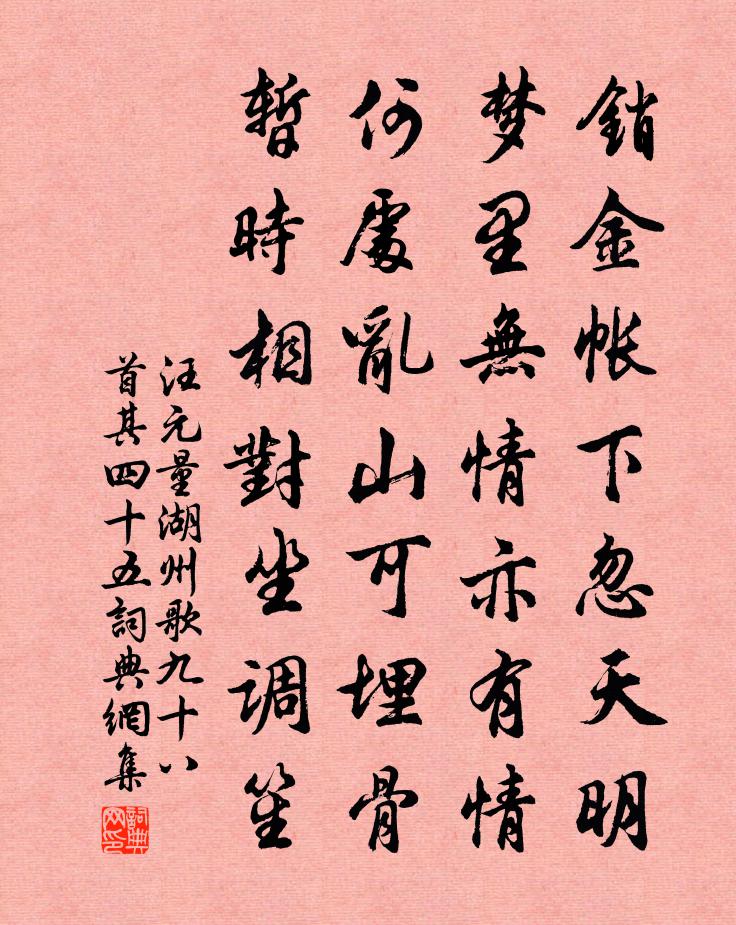 銷金帐下忽天明
梦里無情亦有情
何處亂山可埋骨
暫時相對坐调笙
汪元量湖州歌九十八
首其四十五詞典網集
詞典网印